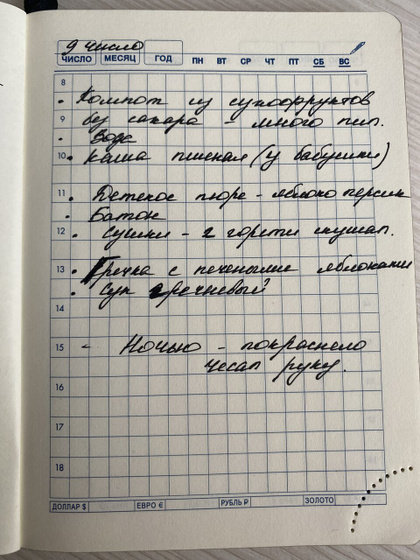 9 число
ЧИСЛО МЕСЯЦ ГОД ПН ВТ СР ЧТ ПТ СБ ВС
8
• Компот из сухофруктов
9 без сахара - много пил.
• Вода
10 • каша пшеная (у бабушки)
11 • Детское пюре - яблоко персик
• Батон
12 • Сушки - 2 горсти скушал.
13 • Гречка с печеными яблоками
• Суп гречневый?
14
15 - Ночью - покраснело
чесал руку.
16
17
18
ДОЛЛАР $ ЕВРО € РУБЛЬ ₽ ЗОЛОТО